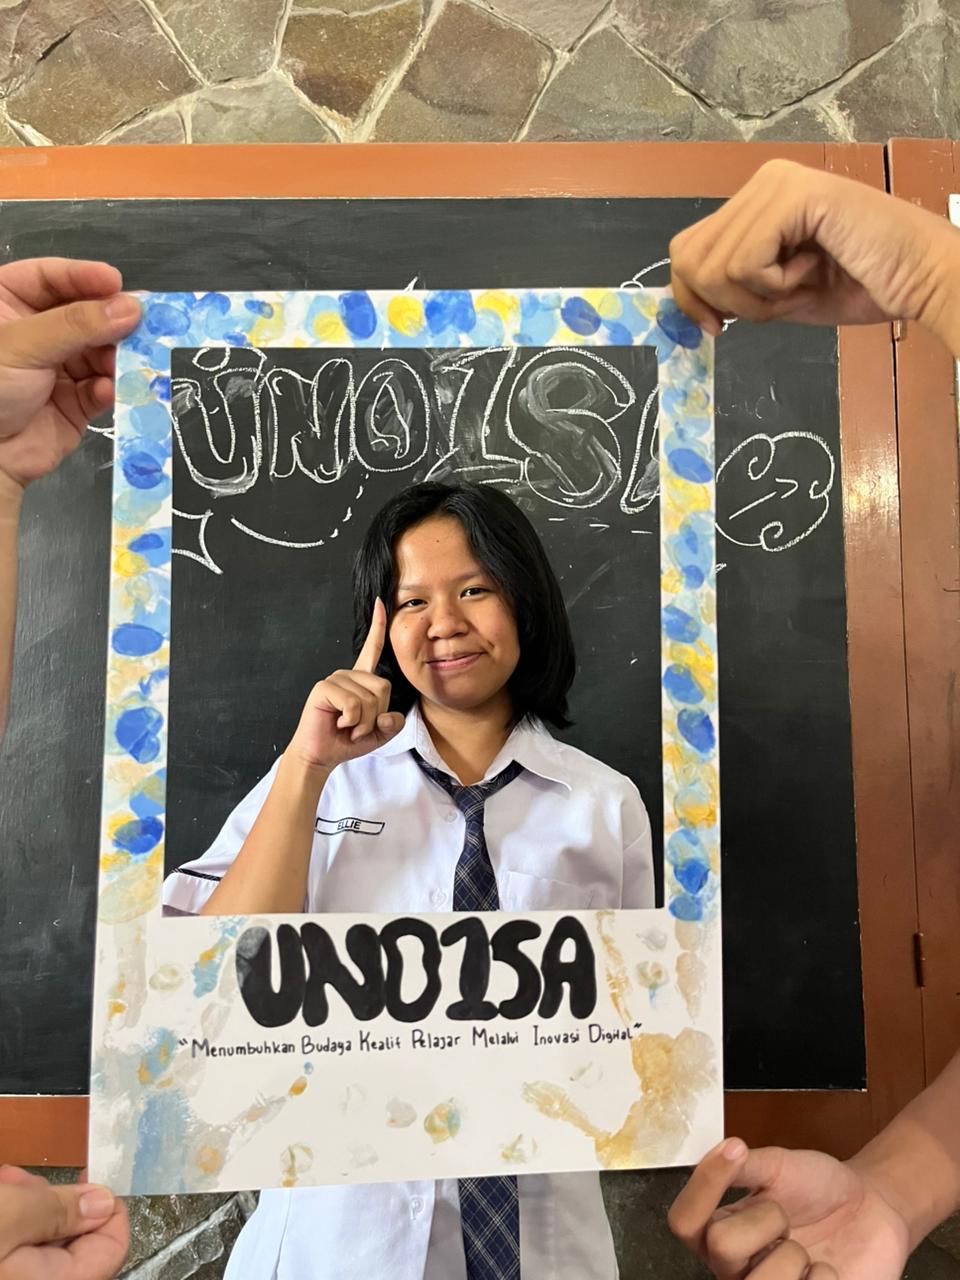 UNO1SA
ELLIE
UNO1SA
"Menumbuhkan Budaya Keatif Pelajar Melalui Inovasi Digital"